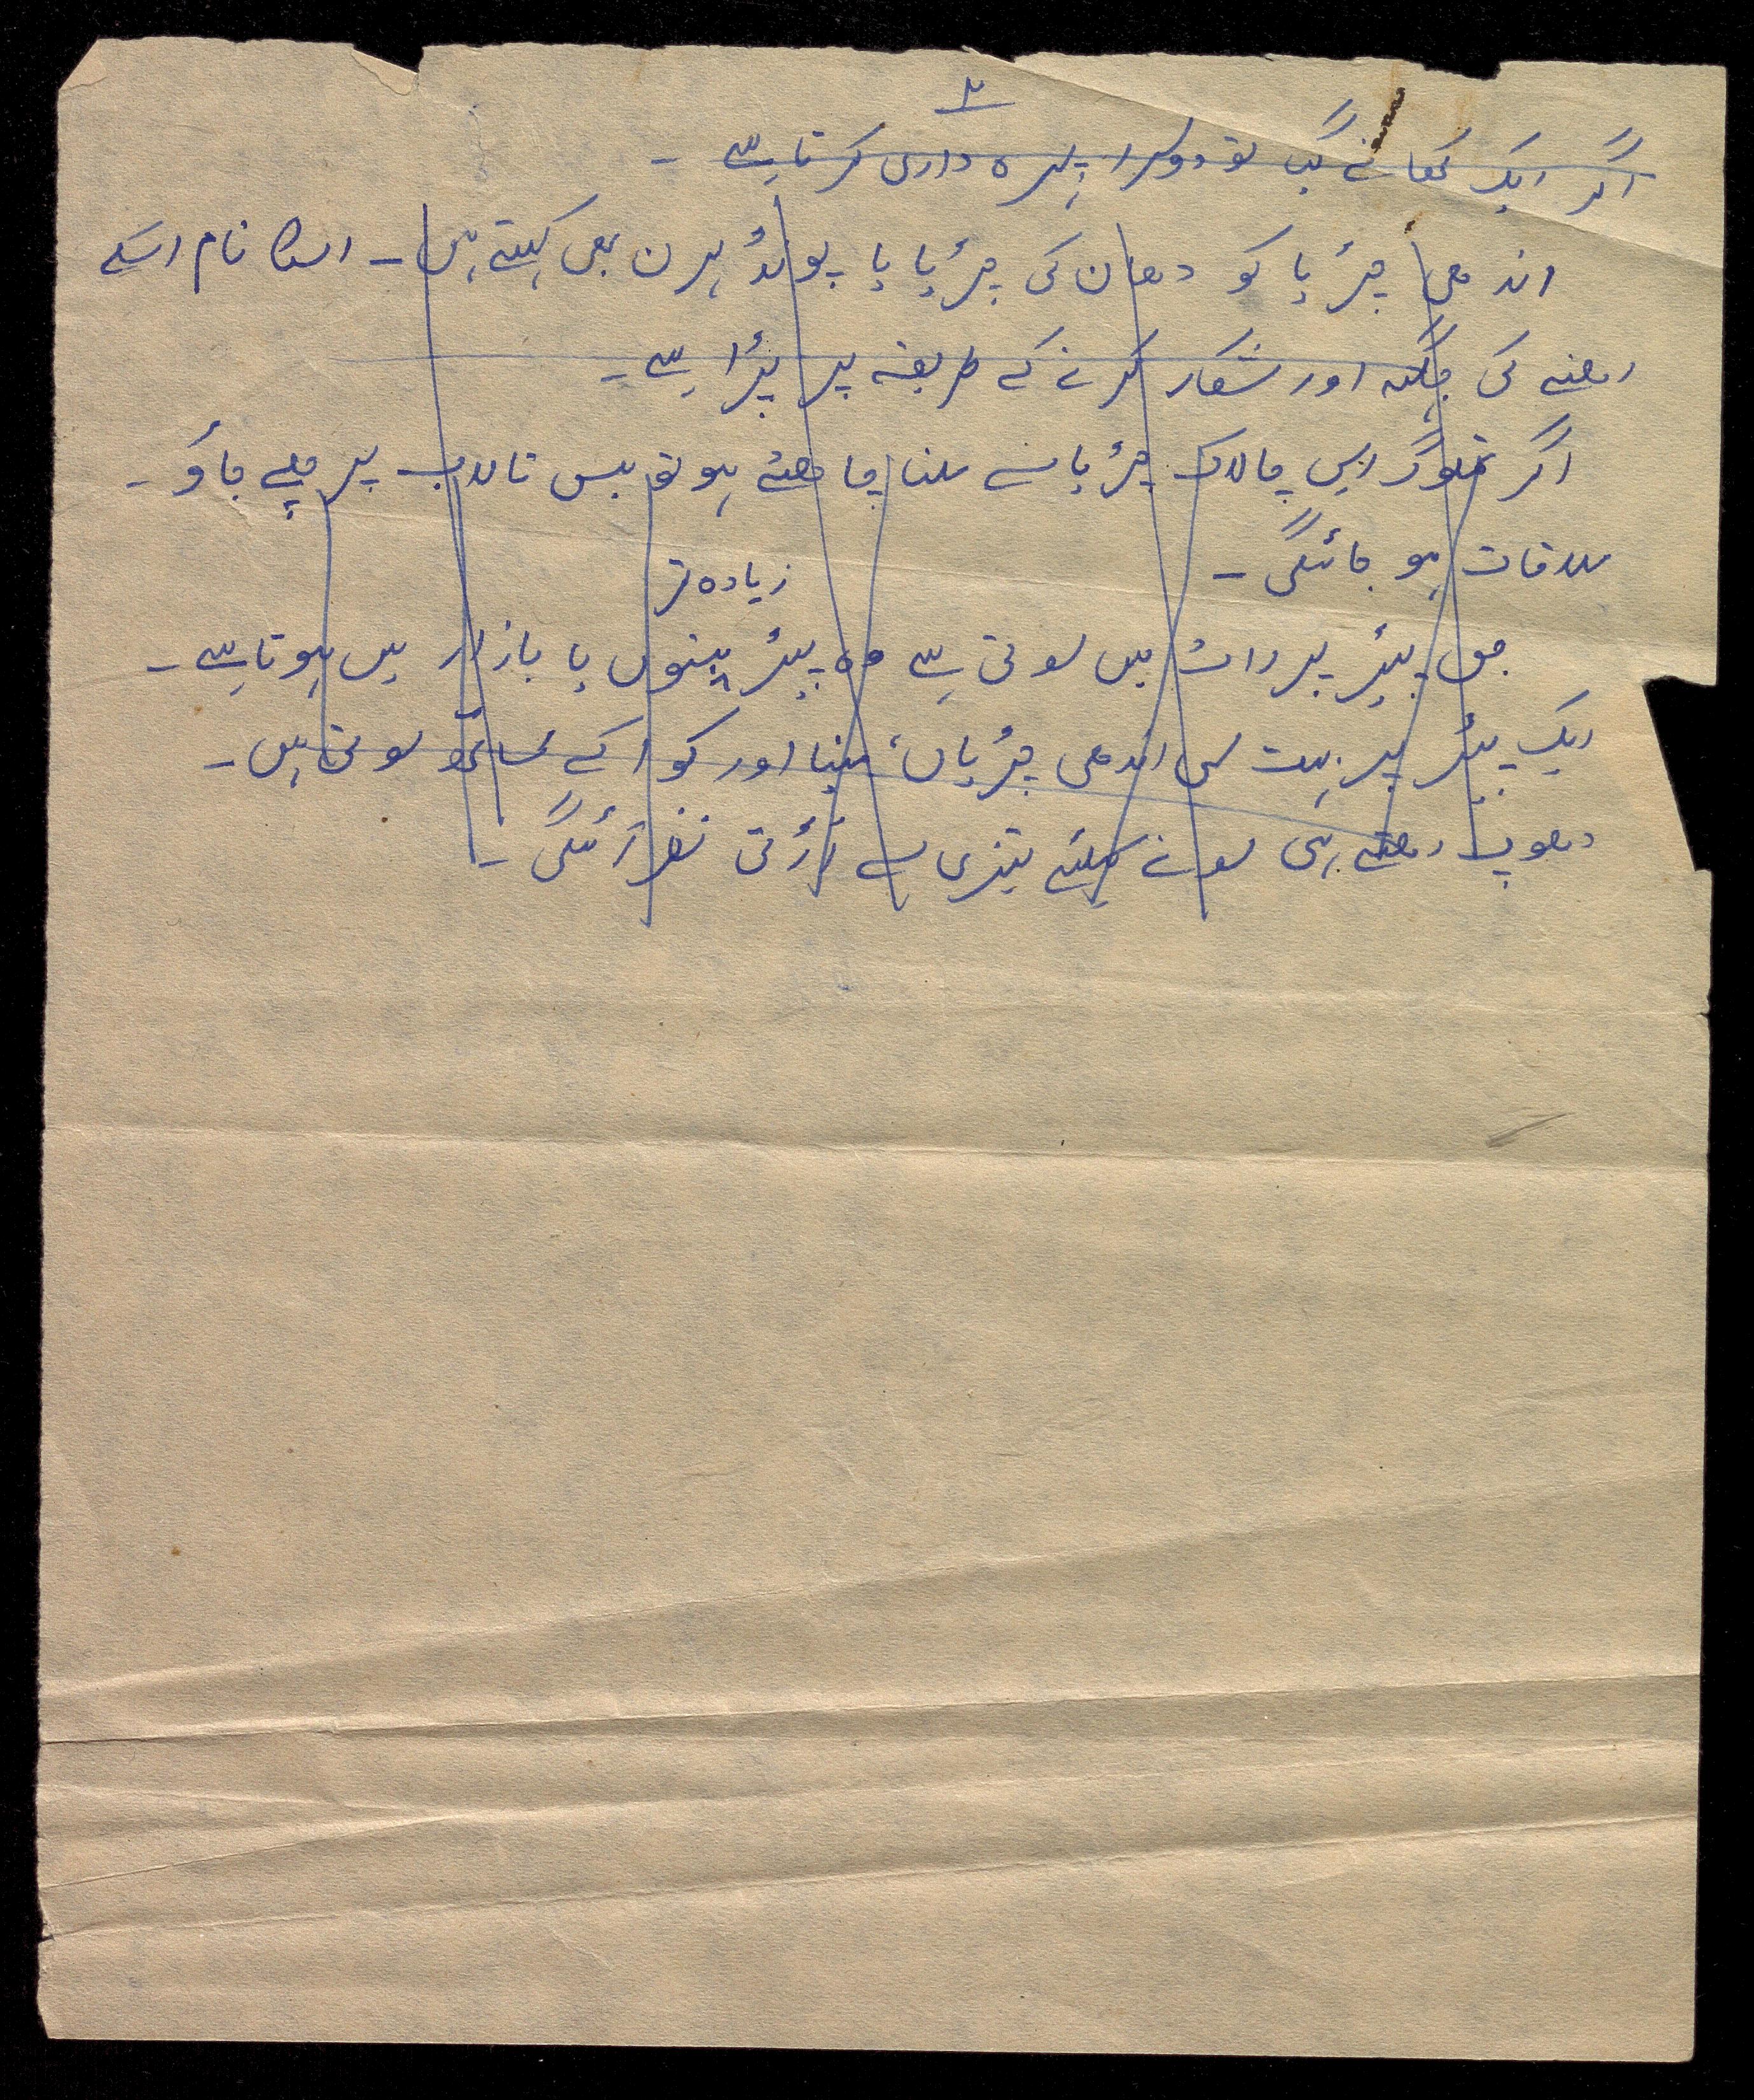 ۲
اگر ایک کھانے گیا تو دوسرا پہرہ داری کرتا ہے ۔
اندھی چڑیا کو دھان کی چڑیا یا پونڈ ہیرن بھی کہتے ہیں ۔ اسکا نام اسکے
رہنے کی جگہ اور شکار کرنے کے طریقہ پر پڑا ہے ۔
اگر تملوگ اس چالاک چڑیا سے ملنا چاہتے ہو تو بس تالاب پر چلے جاؤ ۔
ملاقات ہو جائیگی ۔
زیادہ تر
جس پیڑ پر رات میں سوتی ہے وہ پیڑ بستیوں یا بازار میں ہوتا ہے ۔
ایک پیڑ پر بہت سی اندھی چڑیاں، مینا اور کوا کے ساتھ سوتی ہیں ۔
دھوپ رہتے ہی سونے کیلئے تیزی سے اڑتی نظر آئیگی ۔